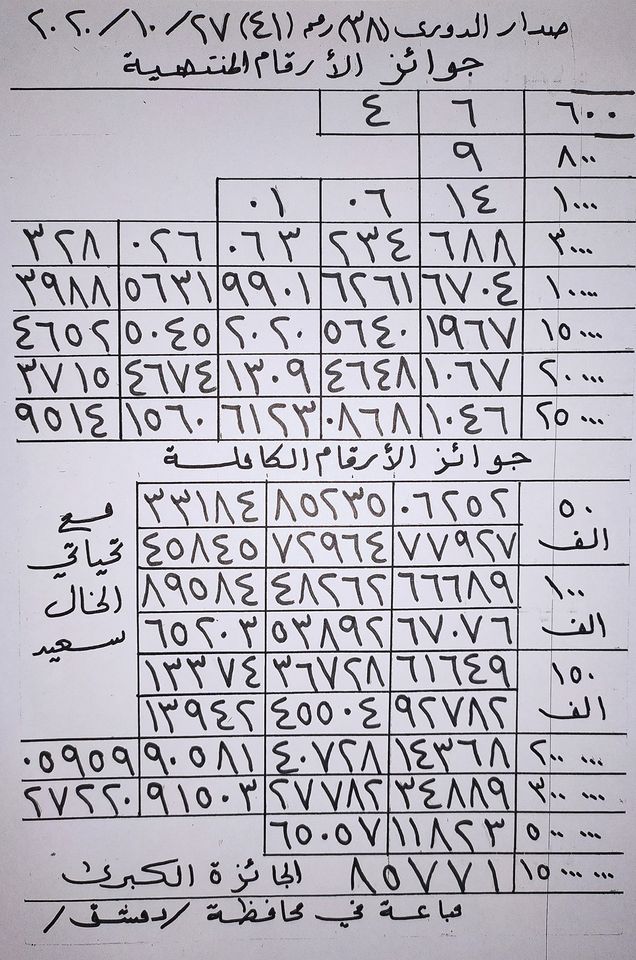 صدار الدوري (٣٨) رقم (٤١) ٢٠٢٠/١٠/٢٧
جوائز الأرقام المنتهية
٦٠٠ ٦ ٤
٨٠٠ ٩
١٠٠٠ ١٤ ٠٦ ٠١
٣٠٠٠ ٦٨٨ ٢٣٤ ٠٦٣ ٠٢٦ ٣٢٨
١٠٠٠٠ ٦٧٠٤ ٦٢٦١ ٩٩٠١ ٥٦٣١ ٣٩٨٨
١٥٠٠٠ ١٩٦٧ ٥٦٤٠ ٢٠٢٠ ٥٠٤٥ ٤٦٥٢
٢٠٠٠٠ ١٠٦٧ ٤٦٤٨ ١٣٠٩ ٤٦٧٤ ٣٧١٥
٢٥٠٠٠ ١٠٤٦ ٠٨٦٨ ٦١٢٣ ١٥٦٠ ٩٥١٤
جوائز الأرقام الكاملة
٥٠ ٠٦٢٥٢ ٨٥٢٣٥ ٣٣١٨٤
الف ٧٧٩٢٧ ٧٢٩٦٤ ٤٥٨٤٥
١٠٠ ٦٦٦٨٩ ٤٨٢٦٢ ٨٩٥٨٤
الف ٦٧٠٧٦ ٥٣٨٩٢ ٦٥٢٠٣
١٥٠ ٦١٦٤٩ ٣٦٧٢٨ ١٣٣٧٤
الف ٩٢٧٨٢ ٤٥٥٠٤ ١٣٩٤٢
٢٠٠٠٠٠ ١٤٣٦٨ ٤٠٧٢٨ ٩٠٥٨١ ٠٥٩٥٩
٣٠٠٠٠٠ ٣٤٨٨٩ ٢٧٧٨٢ ٩١٥٠٣ ٢٧٢٢٠
٥٠٠٠٠٠ ١١٨٢٣ ٦٥٠٥٧
١٥٠٠٠٠٠٠ ٨٥٧٧١ الجائزة الكبرى
مباعة في محافظة /دمشق/
مع
تحياتي
الخال
سعيد